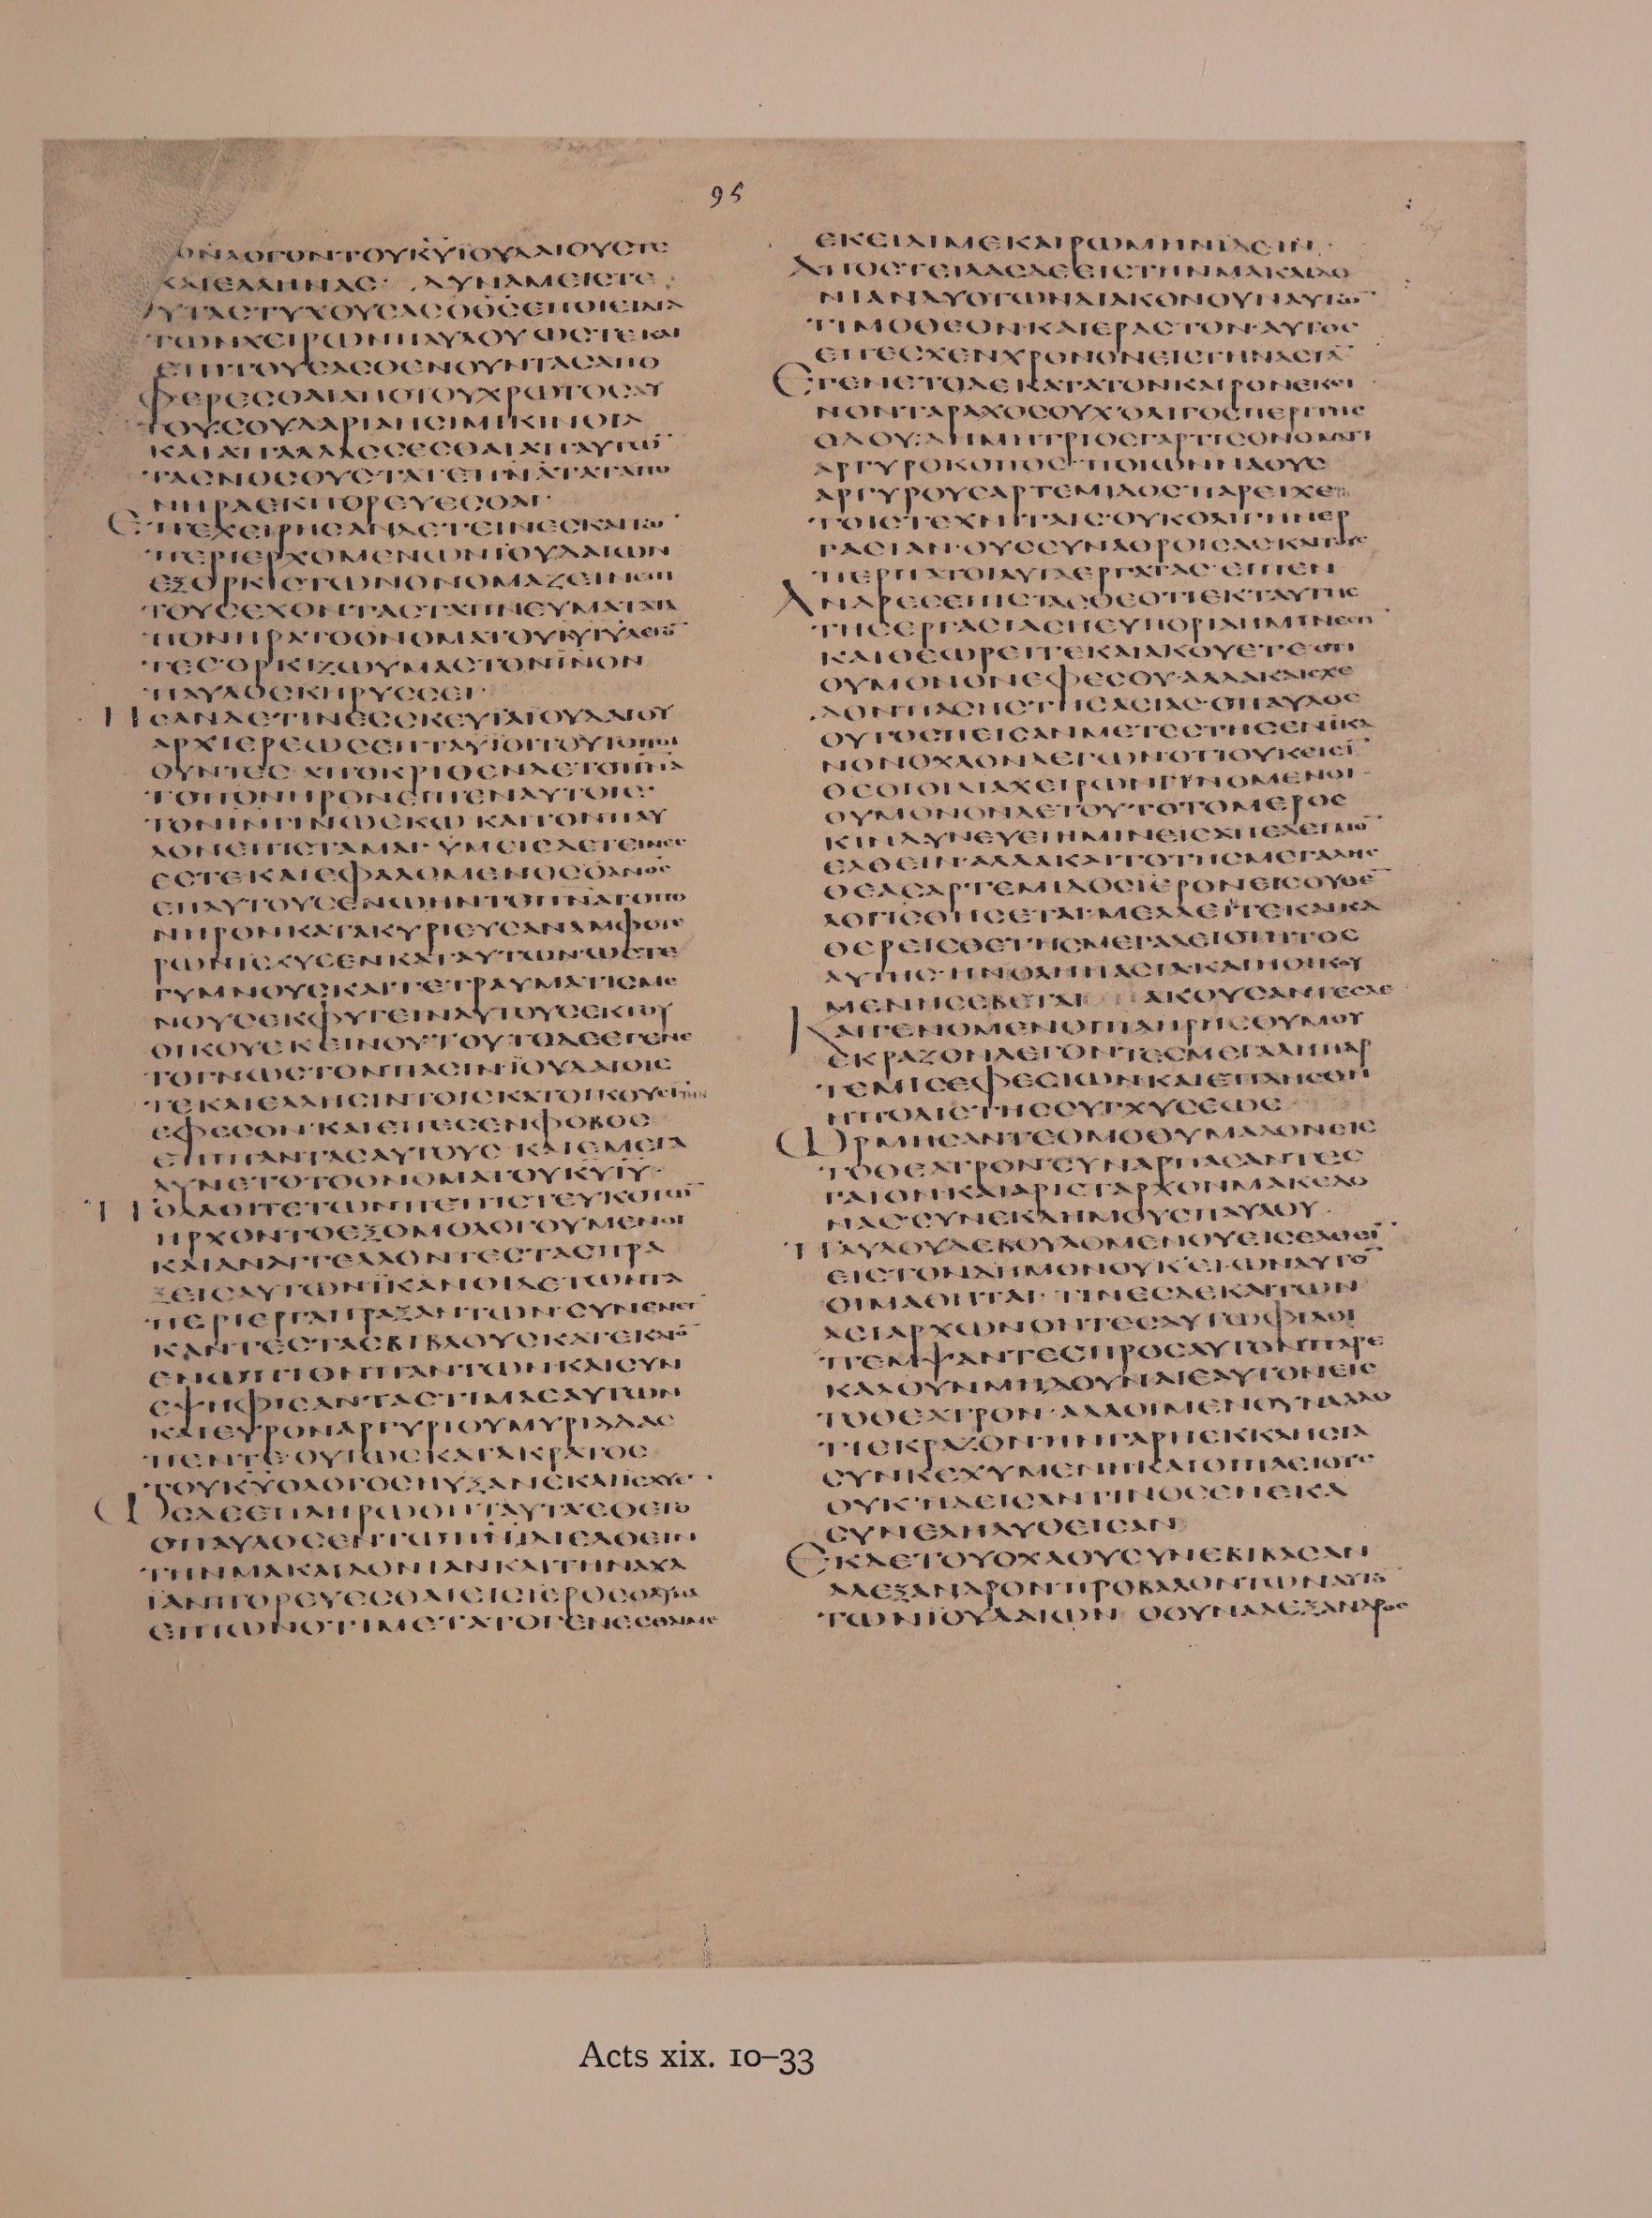 95
ΟΝΛΟΓΟΝΤΟΥΚΥΙΟΥΔΑΙΟΥСΤΕ
ΚΑΙΕΛΛΗΝΑС ΔΥΝΑΜΕΙСΤΕ
ΟΥΤΑСΤΥΧΟΥСΑСΟΘСΕΠΟΙΕΙΔΙΑ
ΤΩΝΧΕΙΡΩΝΠΑΥΛΟΥ ΩСΤΕΚΑΙ
ΕΠΙΤΟΥСΑСΘΕΝΟΥΝΤΑСΑΠΟ
ΦΕΡΕСΘΑΙΑΠΟΤΟΥΧΡΩΤΟСΑΥ
ΤΟΥ·СΟΥΔΑΡΙΑΗСΙΜΙΚΙΝΘΙΑ
ΚΑΙΑΠΑΛΛΑССΕСΘΑΙΑΠΑΥΤΩ̄
ΤΑСΝΟСΟΥС·ΤΑΤΕΠΝΑΤΑΤΑΠΟ
ΝΗΡΑΕΚΠΟΡΕΥΕСΘΑΙ·
ΕΠΕΧΕΙΡΗСΑΝΔΕΤΙΝΕСΚΑΙΤΩ̄
ΠΕΡΙΕΡΧΟΜΕΝΩΝΙΟΥΔΑΙΩΝ
ΕΞΟΡΚΙСΤΩΝΟΝΟΜΑΖΕΙΝΕΠΙ
ΤΟΥСΕΧΟΝΤΑСΤΑΠΝΕΥΜΑΤΑΤΑ
ΠΟΝΗΡΑΤΟΟΝΟΜΑΤΟΥΚΥΙΥΛΕΓΟ̄
ΤΕС·ΟΡΚΙΖΩΥΜΑСΤΟΝΙΝΟΝ
ΠΑΥΛΟСΚΗΡΥССΕΙ·
ΗСΑΝΔΕΤΙΝΕССΚΕΥΙΑΙΟΥΔΑΙΟΥ
ΑΡΧΙΕΡΕΩСΕΠΤΑΥΙΟΙΤΟΥΤΟΠΟΙ
ΟΥΝΤΕС· ΑΠΟΚΡΙΘΕΝΔΕΤΟΠΝΑ
ΤΟΠΟΝΗΡΟΝΕΙΠΕΝΑΥΤΟΙС·
ΤΟΝΙΝΓΙΝΩСΚΩ ΚΑΙΤΟΝΠΑΥ
ΛΟΝΕΠΙСΤΑΜΑΙ· ΥΜΕΙСΔΕΤΙΝΕС
ΕСΤΕΚΑΙΕΦΑΛΟΜΕΝΟСΟΑΝΟС
ΕΠΑΥΤΟΥСΕΝΩΗΝΤΟΠΝΑΤΟΠΟ
ΝΗΡΟΝΚΑΤΑΚΥΡΙΕΥСΑΝΑΜΦΟΤΕ
ΡΩΝΙСΧΥСΕΝΚΑΤΑΥΤΩΝΩСΤΕ
ΓΥΜΝΟΥСΚΑΙΤΕΤΡΑΥΜΑΤΙСΜΕ
ΝΟΥСΕΚΦΥΓΕΙΝΑΥΤΟΥСΕΚΤΟΥ
ΟΙΚΟΥΕΚΕΙΝΟΥ·ΤΟΥΤΟΔΕΕΓΕΝΕ
ΤΟΓΝΩСΤΟΝΠΑСΙΝ·ΙΟΥΔΑΙΟΙС
ΤΕΚΑΙΕΛΛΗСΙΝΤΟΙСΚΑΤΟΙΚΟΥСΙΤΗΝ
ΕΦΕСΟΝ·ΚΑΙΕΠΕСΕΝΦΟΒΟС
ΕΠΙΠΑΝΤΑСΑΥΤΟΥС ΚΑΙΕΜΕΓΑ
ΛΥΝΕΤΟΤΟΟΝΟΜΑΤΟΥΚΥΙΥ·
ΠΟΛΛΟΙΤΕΤΩΝΠΕΠΙСΤΕΥΚΟΤΩ̄
ΗΡΧΟΝΤΟΕΞΟΜΟΛΟΓΟΥΜΕΝΟΙ
ΚΑΙΑΝΑΓΓΕΛΛΟΝΤΕСΤΑСΠΡΑ
ΞΕΙСΑΥΤΩΝ·ΙΚΑΝΟΙΔΕΤΩΝΤΑ
ΠΕΡΙΕΡΓΑΠΡΑΞΑΝΤΩΝ СΥΝΕΝΕΓ
ΚΑΝΤΕСΤΑСΒΙΒΛΟΥСΚΑΤΕΚΑΙΟ̄
ΕΝΩΠΙΟΝΠΑΝΤΩΝΚΑΙСΥΝ
ΕΨΗΦΙСΑΝΤΑСΤΙΜΑСΑΥΤΩΝ
ΚΑΙΕΥΡΟΝΑΡΓΥΡΙΟΥΜΥΡΙΑΔΑС
ΠΕΝΤΕ·ΟΥΤΩСΚΑΤΑΚΡΑΤΟС
ΤΟΥΚΥΟΛΟΓΟСΗΥΞΑΝΕΚΑΙΙСΧΥΕ·
ΩСΔΕΕΠΛΗΡΩΘΗΤΑΥΤΑΕΘΕΤΟ
ΟΠΑΥΛΟСΕΝΤΩΠΝΙΔΙΕΛΘΕΙΝ
ΤΗΝΜΑΚΑΙΔΟΝΙΑΝΚΑΙΤΗΝΑΧΑ
ΙΑΝΠΟΡΕΥΕСΘΑΙΕΙСΙΕΡΟСΟΛΥΜΑ
ΕΙΠΩΝΟΤΙΜΕΤΑΤΟΓΕΝΕСΘΑΙΜΕ
ΕΚΕΙΔΙΜΕΚΑΙΡΩΜΗΝΙΔΕΙΝ·
ΑΠΟСΤΕΙΛΑСΔΕΕΙСΤΗΝΜΑΚΑΙΔΟ
ΝΙΑΝΔΥΟΤΩΝΔΙΑΚΟΝΟΥΝΑΥΤΩ̄
ΤΙΜΟΘΕΟΝ·ΚΑΙΕΡΑСΤΟΝ·ΑΥΤΟС
ΕΠΕСΧΕΝΧΡΟΝΟΝΕΙСΤΗΝΑСΙᾹ
ΕΓΕΝΕΤΟΔΕΚΑΤΑΤΟΝΚΑΙΡΟΝΕΚΕΙ
ΝΟΝΤΑΡΑΧΟСΟΥΧΟΛΙΓΟСΠΕΡΙΤΗС
ΟΔΟΥ·ΔΗΜΗΤΡΙΟСΓΑΡΤΙСΟΝΟΜΑΤΙ
ΑΡΓΥΡΟΚΟΠΟС·ΠΟΙΩΝΝΑΟΥС
ΑΡΓΥΡΟΥСΑΡΤΕΜΙΔΟСΠΑΡΕΙΧΕΤΟ
ΤΟΙСΤΕΧΝΙΤΑΙС·ΟΥΚΟΛΙΓΗΝΕΡ
ΓΑСΙΑΝ·ΟΥССΥΝΑΘΡΟΙСΑСΚΑΙΤΟΥС
ΠΕΡΙΤΑΤΟΙΑΥΤΑΕΡΓΑΤΑС·ΕΙΠΕΝ
ΑΝΔΡΕСΕΠΙСΤΑСΘΕΟΤΙΕΚΤΑΥΤΗС
ΤΗСΕΡΓΑСΙΑСΗΕΥΠΟΡΙΑΗΜΙΝΕСΤΙ
ΚΑΙΘΕΩΡΕΙΤΕΚΑΙΑΚΟΥΕΤΕΟΤΙ
ΟΥΜΟΝΟΝΕΦΕСΟΥ·ΑΛΛΑΚΑΙСΧΕ
ΔΟΝΠΑСΗСΤΗСΑСΙΑС·ΟΠΑΥΛΟС
ΟΥΤΟСΠΕΙСΑΝΜΕΤΕСΤΗСΕΝΙΚΑ
ΝΟΝΟΧΛΟΝΛΕΓΩΝΟΤΙΟΥΚΕΙСῙ
ΘΕΟΙΟΙΔΙΑΧΕΙΡΩΝΓΙΝΟΜΕΝΟΙ·
ΟΥΜΟΝΟΝΔΕΤΟΥΤΟΤΟΜΕΡΟС
ΚΙΝΔΥΝΕΥΕΙΗΜΙΝΕΙСΑΠΕΛΕΓΜΟ̄
ΕΛΘΕΙΝ·ΑΛΛΑΚΑΙΤΟΤΗСΜΕΓΑΛΗС
ΘΕΑСΑΡΤΕΜΙΔΟСΙΕΡΟΝΕΙСΟΥΘΕ̄
ΛΟΓΙСΘΗСΕΤΑΙ·ΜΕΛΛΕΙΤΕΚΑΙΚΑ
ΘΕΡΕΙСΘΕΤΗСΜΕΓΑΛΕΙΟΤΗΤΟС
ΑΥΤΗС·ΗΝΟΛΗΗΑСΙΑΚΑΙΗΟΙΚΟΥ
ΜΕΝΗСΕΒΕΤΑΙ ΑΚΟΥСΑΝΤΕСΔΕ
ΚΑΙΓΕΝΟΜΕΝΟΙΠΛΗΡΗСΘΥΜΟΥ
ΕΚΡΑΖΟΝΛΕΓΟΝΤΕСΜΕΓΑΛΗΗΑΡ
ΤΕΜΙСΕΦΕСΙΩΝΚΑΙΕΠΛΗСΘΗ
ΗΠΟΛΙСΤΗССΥΓΧΥСΕΩС
ΩΡΜΗСΑΝΤΕΟΜΟΘΥΜΑΔΟΝΕΙС
ΤΟΘΕΑΤΡΟΝ·СΥΝΑΡΠΑСΑΝΤΕС
ΓΑΙΟΝΚΑΙΑΡΙСΤΑΡΧΟΝΜΑΚΕΔΟ
ΝΑС·СΥΝΕΚΔΗΜΟΥСΠΑΥΛΟΥ·
ΠΑΥΛΟΥΔΕΒΟΥΛΟΜΕΝΟΥΕΙСΕΛΘΕῙ
ΕΙСΤΟΝΔΗΜΟΝΟΥΚΕΙΩΝΑΥΤΟ̄
ΟΙΜΑΘΗΤΑΙ· ΤΙΝΕСΔΕΚΑΙΤΩΝ
ΑСΙΑΡΧΩΝΟΝΤΕСΑΥΤΩΦΙΛΟΙ
ΠΕΜΨΑΝΤΕСΠΡΟСΑΥΤΟΝΠΑΡΕ
ΚΑΛΟΥΝΜΗΔΟΥΝΑΙΕΑΥΤΟΝΕΙС
ΤΟΘΕΑΤΡΟΝ·ΑΛΛΟΙΜΕΝΟΥΝΑΛΛΟ
ΤΙΕΚΡΑΖΟΝ·ΗΝΓΑΡΗΕΚΚΛΗСΙΑ
СΥΝΚΕΧΥΜΕΝΗ·ΚΑΙΟΙΠΛΕΙΟΥС
ΟΥΚΗΔΕΙСΑΝΤΙΝΟСΕΝΕΚΑ
СΥΝΕΛΗΛΥΘΕΙСΑΝ
ΕΚΔΕΤΟΥΟΧΛΟΥСΥΝΕΒΙΒΑСΑΝ
ΑΛΕΞΑΝΔΡΟΝΠΡΟΒΑΛΟΝΤΩΝΑΥΤΟ̄
ΤΩΝΙΟΥΔΑΙΩΝ ΟΟΥΝΑΛΕΞΑΝΔΡΟС
Acts xix. 10–33